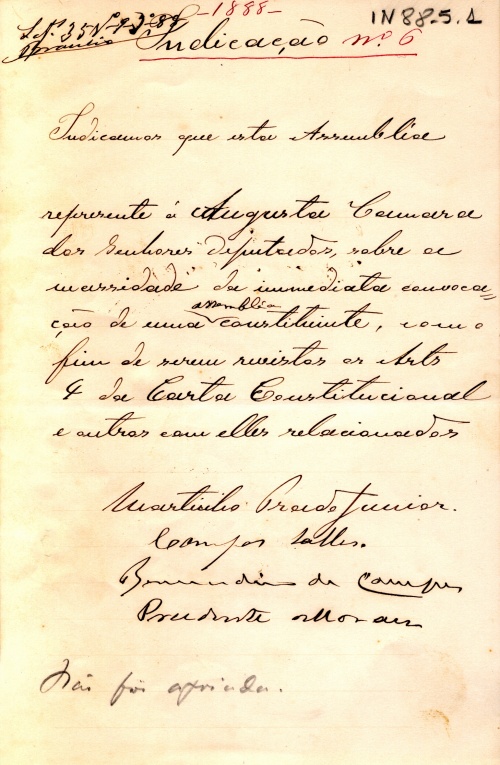 -1888-
IN88-5.1
Indicação nº 6
Indicamos que esta Assembléa
represente á Augusta Camara
dos Senhores Deputados, sobre a
necessidade da immediata convoca=
ção de uma assembléa constituinte, com o
fim de serem revistos os Arts
4 da Carta Constitucional
e outros com elles relacionados
Martinho Prado Junior.
Campos Salles.
Bernardino de Campos
Prudente Moraes
Não foi apoiada.